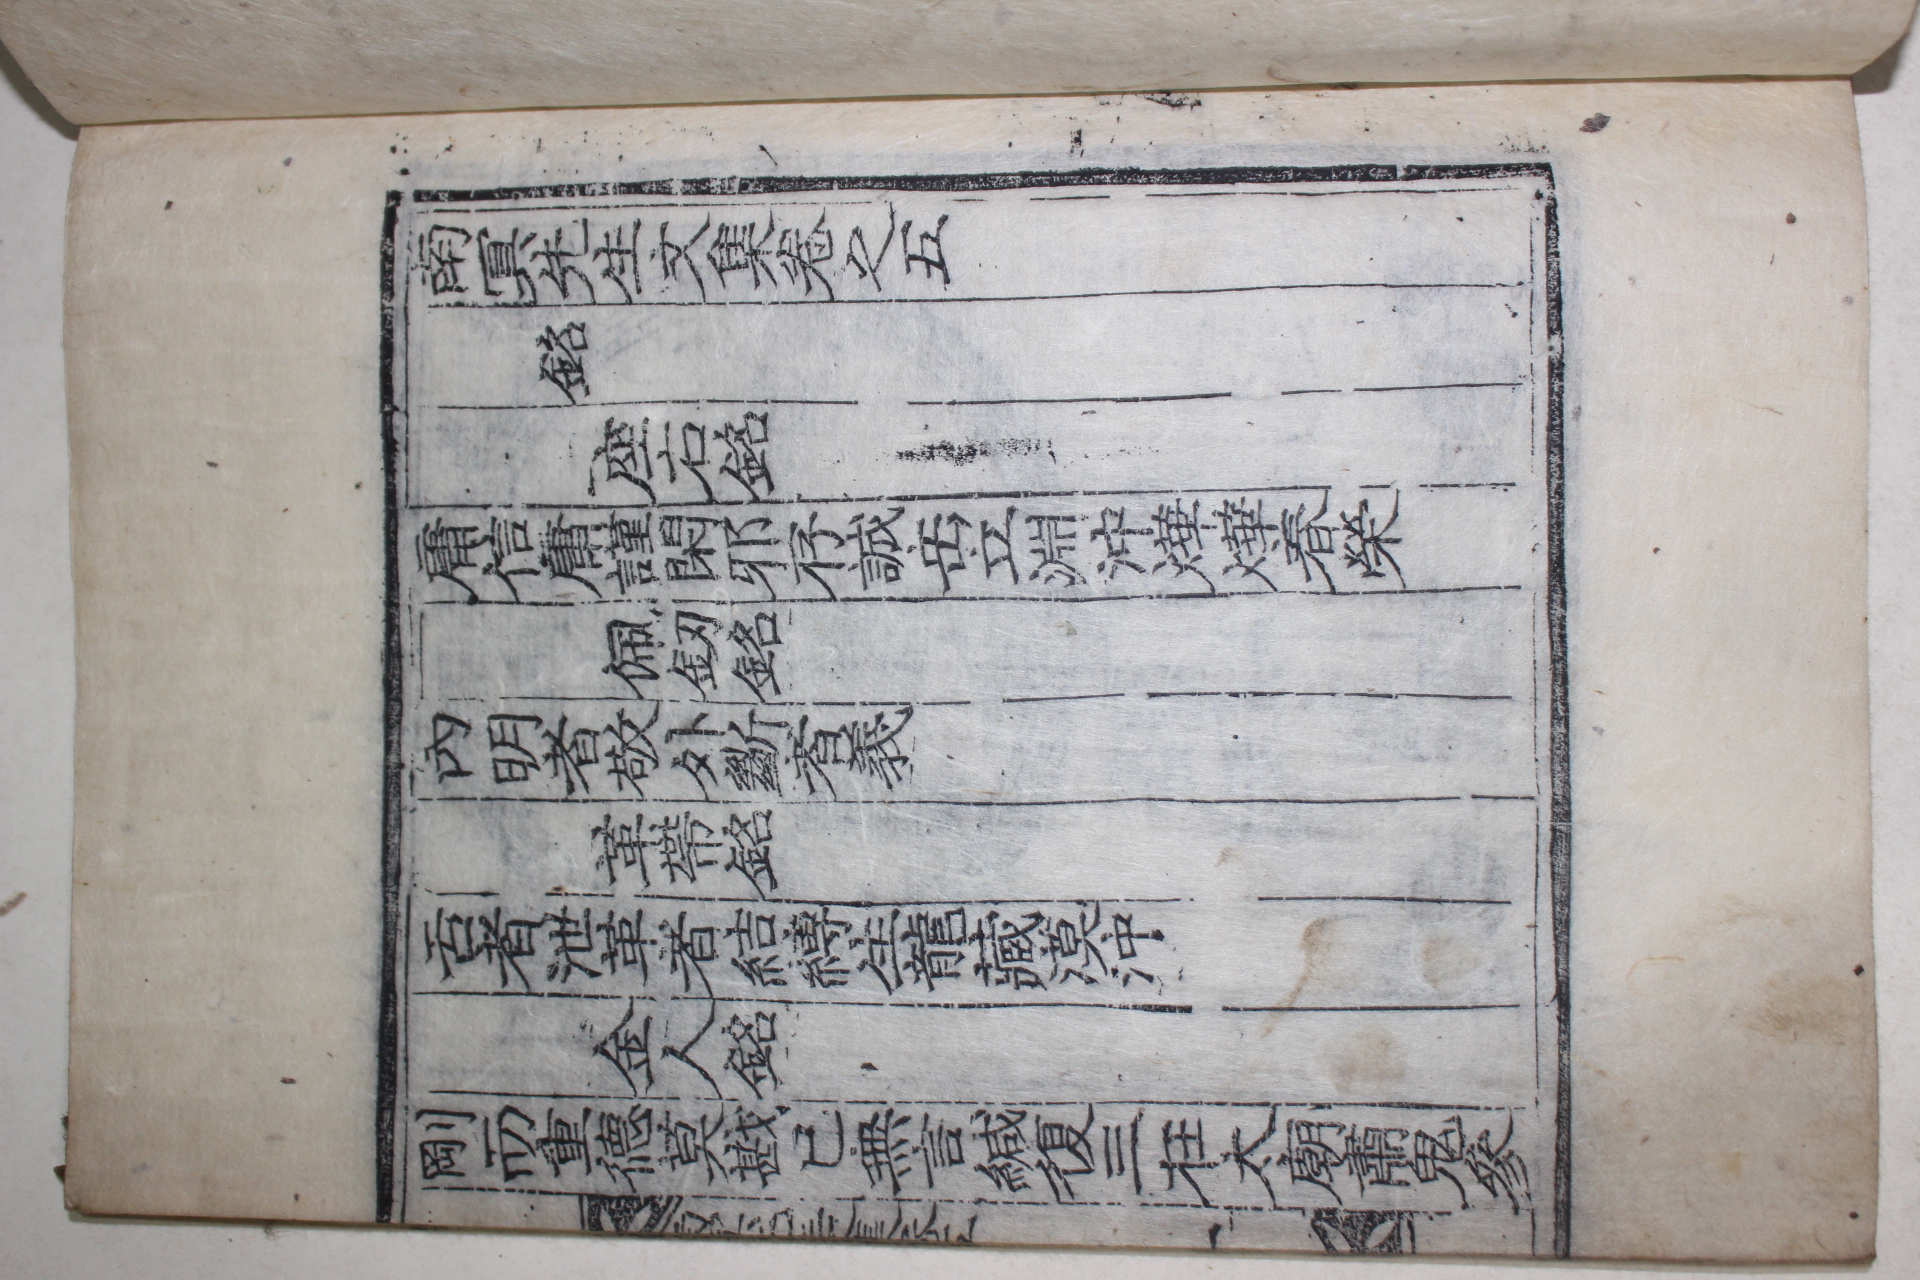 南冥先生文集卷之五
銘
座右銘
庸信庸謹閑邪存誠岳立淵冲燁燁春榮
佩釰銘
內明者敬外斷者義
革帶銘
舌者泄革者結縛生龍藏漠冲
金人銘
剛而重德莫戡已無言緘復三在太廟肅鬼參